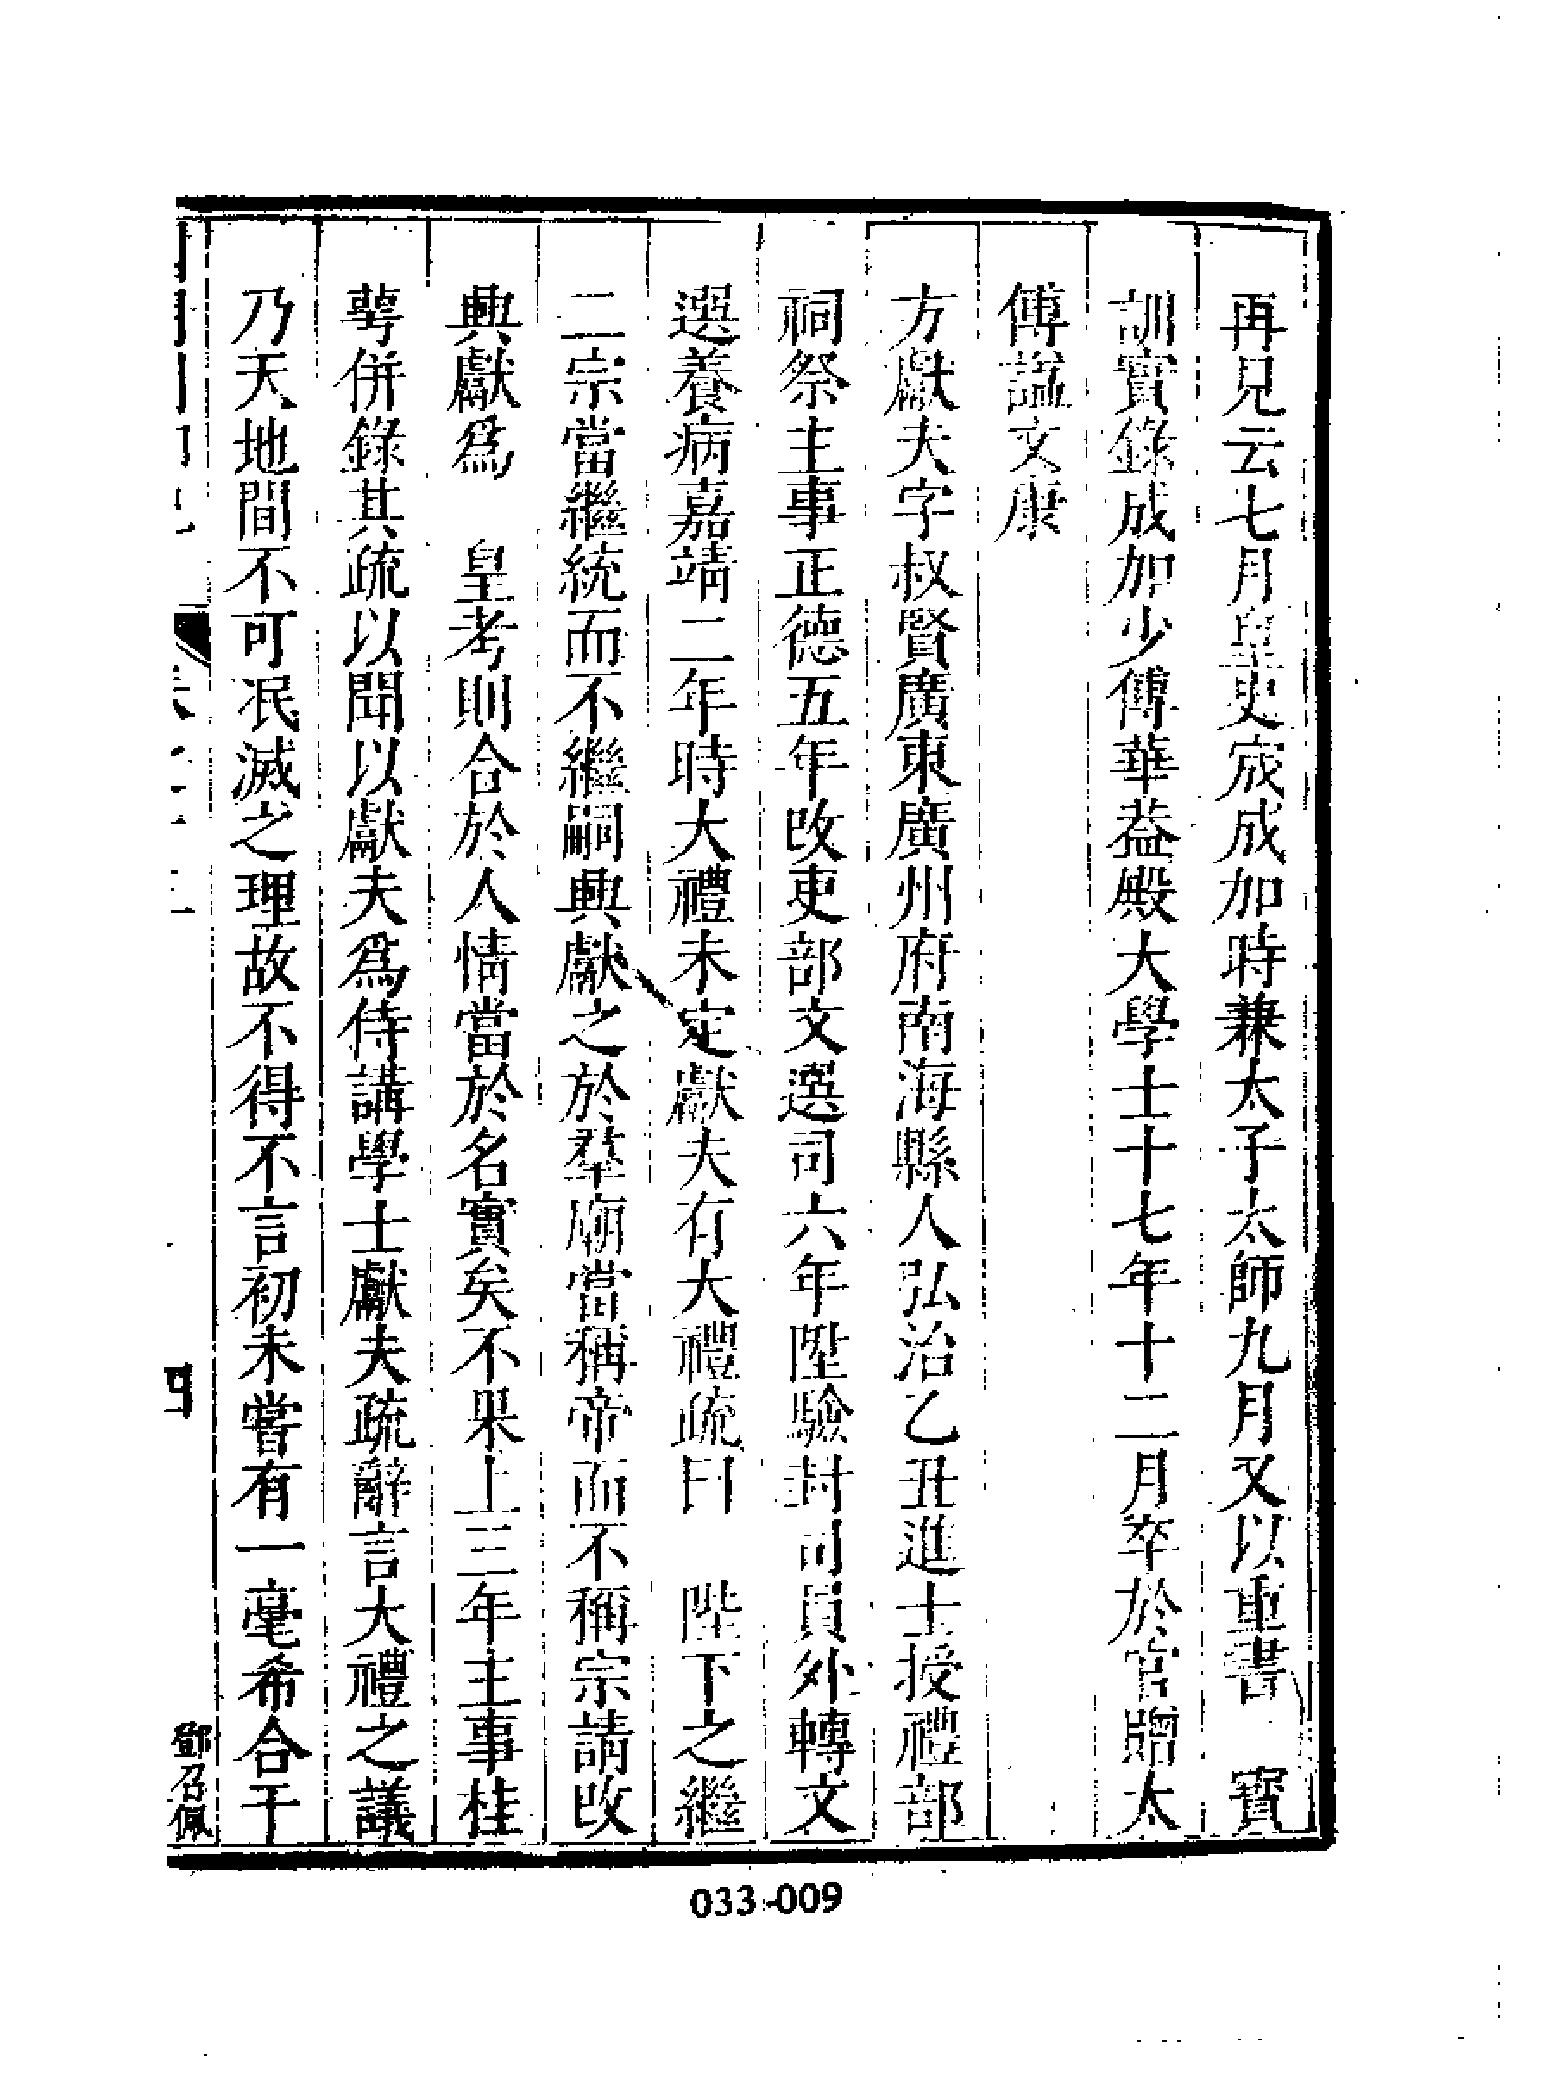 再見云七月皇史宬成加時兼太子太師九月又以重書　寶
訓實錄成加少傅華葢殿大學士十七年十二月卒於官贈太
傅諡文康
方獻夫字叔賢廣東廣州府南海縣人弘治乙丑進士授禮部
祠祭主事正德五年改吏部文選司六年陞驗封司員外轉文
選養病嘉靖二年時大禮未定獻夫有大禮疏曰　陛下之繼
二宗當繼統而不繼嗣興獻之於羣廟當稱帝而不稱宗請改
興獻爲　皇考則合於人情當於名實矣不果上三年主事桂
萼併錄其疏以聞以獻夫爲侍講學士獻夫疏辭言大禮之議
乃天地間不可泯滅之理故不得不言初未嘗有一毫希合干
四
鄧召佩
033-009